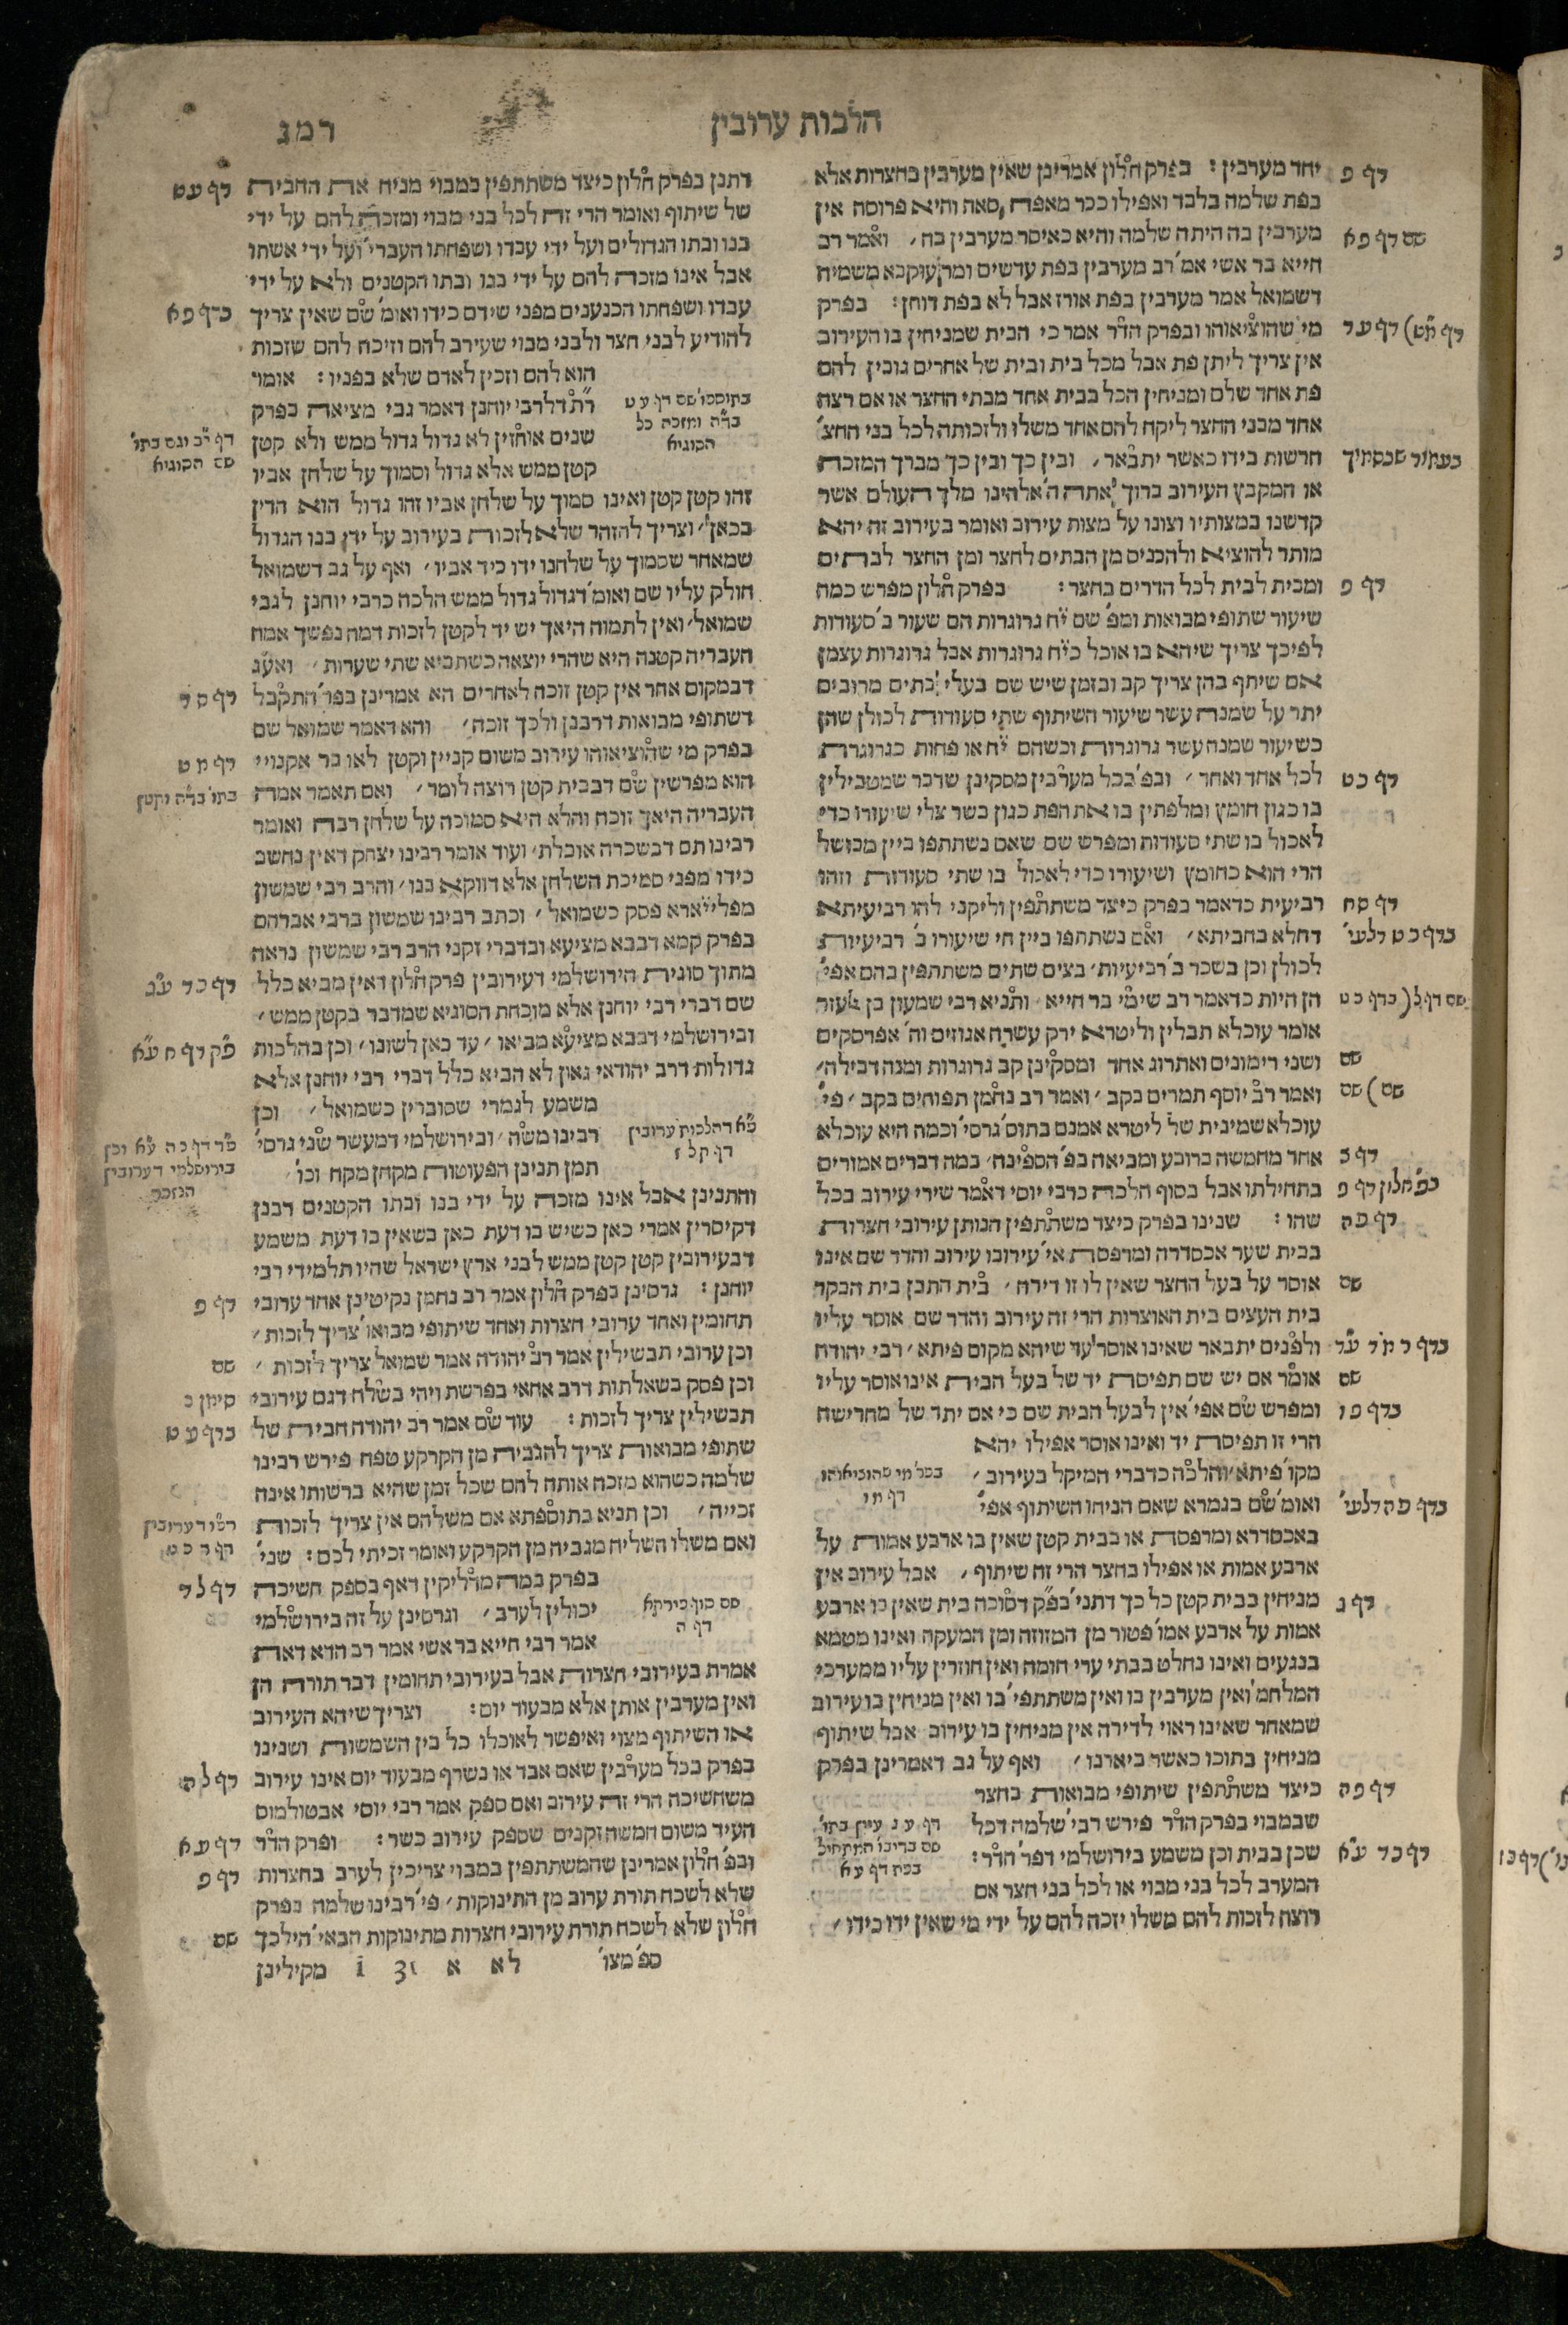 הלכות ערובין
רמג
יחד מערבין : בפרק חלון אמרינן שאין מערבין בחצרות אלא
בפת שלמה בלבד ואפילו ככר מאפה סאה והיא פרוסה אין
מערבין בה היתה שלמה והיא כאיסר מערבין בה ׳ ואמר רב
חייא בר אשי אמ׳ רב מערבין בפת עדשים ומר עוקבא משמיה
דשמואל אמר מערבין בפת אורז אבל לא בפת דוחן : בפרק
מי שהוציאוהו ובפרק הדר אמר כי הבית שמניחין בו העירוב
אין צריך ליתן פת אבל מכל בית ובית של אחרים גובין להם
פת אחד שלם ומניחין הכל בבית אחד מבתי החצר או אם רצה
אחד מבני החצר ליקח להם אחד משלו ולזכותה לכל בני החצ׳
הרשות בידו כאשר יתבאר ׳ ובין כך ובין כך מברך המזכה
או המקבץ העירוב ברוך אתה ה׳ אלהינו מלך העולם אשר
קדשנו במצותיו וצונו על מצות עירוב ואומר בעירוב זה יהא
מותר להוציא ולהכניס מן הבתים לחצר ומן החצר לבתים
ומבית לבית לכל הדרים בחצר : בפרק חלון מפרש כמה
שיעור שתופי מבואות ומפ׳ שם י״ח גרוגרות הם שעור ב׳ סעודות
לפיכך צריך שיהא בו אוכל כי״ח גרוגרות אבל גרוגרות עצמן
אם שיתף בהן צריך קב ובזמן שיש שם בעלי בתים מרובים
יתר על שמנה עשר שיעור השיתוף שתי סעודות לכולן שהן
כשיעור שמנה עשר גרוגרות וכשהם י״ח או פחות כגרוגרת
לכל אחד ואחד ׳ ובפ׳ בכל מערבין מסקינן שדבר שמטבילין
בו כגון חומץ ומלפתין בו את הפת כגון בשר צלי שיעורו כדי
לאכול בו שתי סעודות ומפרש שם שאם נשתתפו ביין מבושל
הרי הוא כחומץ ושיעורו כדי לאכול בו שתי סעודות וזהו
רביעית כדאמר בפרק כיצד משתתפין וליקני להו רביעיתא
דחלא בחביתא ׳ ואם נשתתפו ביין חי שיעורו ב׳ רביעיות
לכולן וכן בשכר ב׳ רביעיות ׳ בצים שתים משתתפין בהם אפי׳
הן חיות כדאמר רב שימי בר חייא ׳ ותניא רבי שמעון בן אלעזר
אומר עוכלא תבלין וליטרא ירק עשרה אגוזים וה׳ אפרסקים
ושני רימונים ואתרוג אחד ומסקינן קב גרוגרות ומנה דבילה ׳
ואמר רב יוסף תמרים בקב ׳ ואמר רב נחמן תפוחים בקב ׳ פי׳
עוכלא שמינית של ליטרא אמנם בתוס׳ גרסי׳ וכמה היא עוכלא
אחד מחמשה ברובע ומביאה בפ׳ הספינה ׳ במה דברים אמורים
בתחילתו אבל בסוף הלכה כרבי יוסי דאמר שירי עירוב בכל
שהו : שנינו בפרק כיצד משתתפין הנותן עירובי חצרות
בבית שער אכסדרה ומרפסת אי׳ עירובו עירוב והדר שם אינו
אוסר על בעל החצר שאין לו זו דירה ׳ בית התבן בית הבקר
בית העצים בית האוצרות הרי זה עירוב והדר שם אוסר עליו
ולפנים יתבאר שאינו אוסר עד שיהא מקום פיתא ׳ רבי יהודה
אומר אם יש שם תפיסת יד של בעל הבית אינו אוסר עליו
ומפרש שם אפי׳ אין לבעל הבית שם כי אם יתד של מחרישה
הרי זו תפיסת יד ואינו אוסר אפילו יהא
מקו׳ פיתא ׳ והלכה כדברי המיקל בעירוב ׳
ואומ׳ שם בגמרא שאם הניחו השיתוף אפי׳
באכסדרא ומרפסת או בבית קטן שאין בו ארבע אמות על
ארבע אמות או אפילו בחצר הרי זה שיתוף ׳ אבל עירוב אין
מניחין בבית קטן כל כך דתני׳ בפ״ק דסוכה בית שאין בו ארבע
אמות על ארבע אמו׳ פטור מן המזוזה ומן המעקה ואינו מטמא
בנגעים ואינו נחלט בבתי ערי חומה ואין חוזרין עליו ממערכי
המלחמ׳ ואין מערבין בו ואין משתתפי׳ בו ואין מניחין בו עירוב
שמאחר שאינו ראוי לדירה אין מניחין בו עירוב אבל שיתוף
מניחין בתוכו כאשר ביארנו ׳ ואף על גב דאמרינן בפרק
כיצד משתתפין שיתופי מבואות בחצר
שבמבוי בפרק הדר פירש רבי׳ שלמה דכל
שכן בבית וכן משמע בירושלמי דפר׳ הדר :
המערב לכל בני מבוי או לכל בני חצר אם
רוצה לזכות להם משלו יזכה להם על ידי מי שאין ידו כידו ׳
דף פ
שם דף פא
דף מט) דף עד
בעמוד שבסמיך
דף פ
דף כט
דף סח
בדף כט דלעי׳
שם דף ל) בדף כט
שם
שם) שם
דף ב
בפ׳ חלון דף פ
דף פה
שם
שם
בדף פו
בפר׳ מי שהוציאוהו
דף מו
בדף פה דלעי׳
דף ג
דף פה
דף עג עיין בתו׳
שם בדיבו׳ המתחיל
דף כד ע״א
דתנן בפרק חלון כיצד משתתפין במבוי מניח את החבית
של שיתוף ואומר הרי זה לכל בני מבוי ומזכה להם על ידי
בנו ובתו הגדולים ועל ידי עבדו ושפחתו העברי׳ ועל ידי אשתו
אבל אינו מזכה להם על ידי בנו ובתו הקטנים ולא על ידי
עבדו ושפחתו הכנענים מפני שידם כידו ואומ׳ שם שאין צריך
להודיע לבני חצר ולבני מבוי שעירב להם וזיכה להם שזכות
הוא להם וזכין לאדם שלא בפניו : אומר
ר״ת דלרבי יוחנן דאמר גבי מציאה בפרק
שנים אוחזין לא גדול גדול ממש ולא קטן
קטן ממש אלא גדול וסמוך על שלחן אביו
זהו קטן קטן ואינו סמוך על שלחן אביו זהו גדול הוא הדין
בכאן ׳ וצריך להזהר שלא לזכות בעירוב על ידי בנו הגדול
שמאחר שסמוך על שלחנו ידו כיד אביו ׳ ואף על גב דשמואל
חולק עליו שם ואומ׳ דגדול גדול ממש הלכה כרבי יוחנן לגבי
שמואל ׳ ואין לתמוה היאך יש יד לקטן לזכות דמה נפשך אמה
העבריה קטנה היא שהרי יוצאה כשתביא שתי שערות ׳ ואע״ג
דבמקום אחר אין קטן זוכה לאחרים הא אמרינן בפר׳ התקבל
דשתופי מבואות דרבנן ולכך זוכה ׳ והא דאמר שמואל שם
בפרק מי שהוציאוהו עירוב משום קניין וקטן לאו בר אקנויי
הוא מפרשין שם דבבית קטן רוצה לומר ׳ ואם תאמר אמה
העבריה היאך זוכה והלא היא סמוכה על שלחן רבה ואומר
רבינו תם דבשכרה אוכלת ׳ ועוד אומר רבינו יצחק דאין נחשב
כידו מפני סמיכת השלחן אלא דווקא בנו ׳ והרב רבי שמשון
מפלייארא פסק כשמואל ׳ וכתב רבינו שמשון ברבי אברהם
בפרק קמא דבבא מציעא ובדברי זקני הרב רבי שמשון נראה
מתוך סוגית הירושלמי דעירובין פרק חלון דאין מביא כלל
שם דברי רבי יוחנן אלא מוכחת הסוגיא שמדבר בקטן ממש ׳
ובירושלמי דבבא מציעא מביאו ׳ עד כאן לשונו ׳ וכן בהלכות
גדולות דרב יהודאי גאון לא הביא כלל דברי רבי יוחנן אלא
משמע לגמרי שסוברין כשמואל ׳ וכן
רבינו משה ׳ ובירושלמי דמעשר שני גרסי׳
תמן תנינן הפעוטות מקחן מקח וכו׳
והתנינן אבל אינו מזכה על ידי בנו ובתו הקטנים רבנן
דקיסרין אמרי כאן כשיש בו דעת כאן בשאין בו דעת משמע
דבעירובין קטן קטן ממש לבני ארץ ישראל שהיו תלמידי רבי
יוחנן : גרסינן בפרק חלון אמר רב נחמן נקיטינן אחד ערובי
תחומין ואחד ערובי חצרות ואחד שיתופי מבואו׳ צריך לזכות ׳
וכן ערובי תבשילין אמר רב יהודה אמר שמואל צריך לזכות ׳
וכן פסק בשאלתות דרב אחאי בפרשת ויהי בשלח דגם עירובי
תבשילין צריך לזכות : עוד שם אמר רב יהודה חבית של
שתופי מבואות צריך להגביה מן הקרקע טפח פירש רבינו
שלמה כשהוא מזכה אותה להם שכל זמן שהיא ברשותו אינה
זכייה ׳ וכן תניא בתוספתא אם משלהם אין צריך לזכות
ואם משלו השליח מגביה מן הקרקע ואומר זכיתי לכם : שני׳
בפרק במה מדליקין דאף בספק חשיכה
יכולין לערב ׳ וגרסינן על זה בירושלמי
אמר רבי חייא בר אשי אמר רב הדא דאת
אמרת בעירובי חצרות אבל בעירובי תחומין דבר תורה הן
ואין מערבין אותן אלא מבעוד יום : וצריך שיהא העירוב
או השיתוף מצוי ואיפשר לאוכלו כל בין השמשות ושנינו
בפרק בכל מערבין שאם אבד או נשרף מבעוד יום אינו עירוב
משחשיכה הרי זה עירוב ואם ספק אמר רבי יוסי אבטולמוס
העיד משום חמשה זקנים שספק עירוב כשר : ופרק הדר
ובפ׳ חלון אמרינן שהמשתתפין במבוי צריכין לערב בחצרות
שלא לשכח תורת ערוב מן התינוקות ׳ פי׳ רבינו שלמה בפרק
חלון שלא לשכח תורת עירובי חצרות מתינוקות הבאי׳ הילכך
דף עט
בדף פא
בתוספו׳ שם דף עט
בד״ה ומזכה כל
הסוגיא
דף י״ב וגם בתו׳
שם הסוגיא
דף סד
דף מט
בתו׳ בד״ה וקטן
דף כד ע״ב
פ״ק דף ח ע״א
פ״א דהלכות ערובין
פ״ד דף כה ע״א וכן
בירושלמי דערובין
הנזכר
דף פ
שם
סימן כ
בדף עט
דף לד
שם סוף פירקא
דף ה
דף לה
דף עא
דף פ
שם
ספ׳ מצו׳ לא א 31 i מקילינן